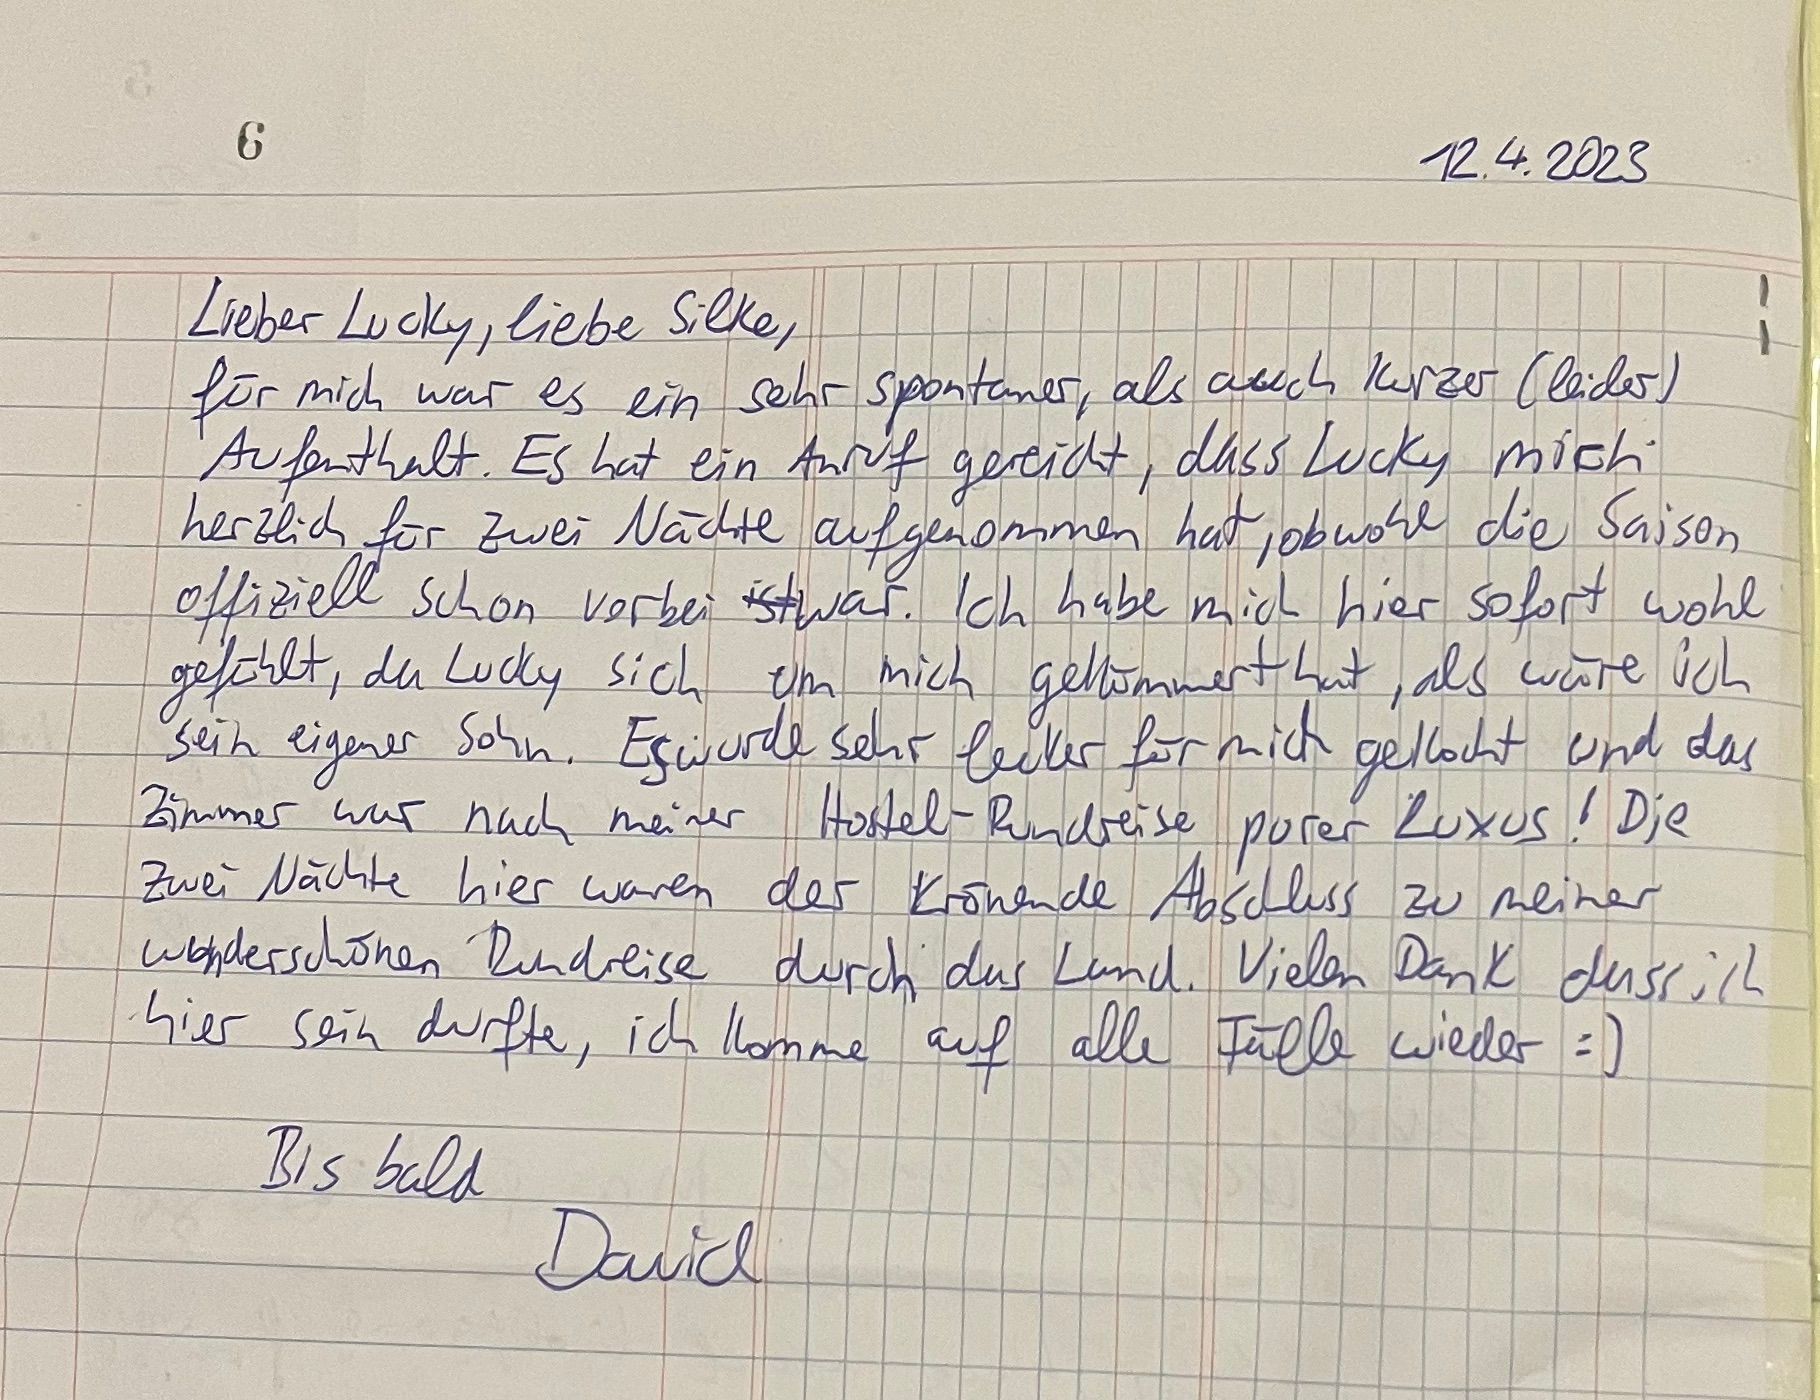 6
12.4.2023
Lieber Lucky, liebe Silke,
für mich war es ein sehr spontaner, als auch kurzer (leider)
Aufenthalt. Es hat ein Anruf gereicht, dass Lucky mich
herzlich für zwei Nächte aufgenommen hat, obwohl die Saison
offiziell schon vorbei ist war. Ich habe mich hier sofort wohl
gefühlt, da Lucky sich um mich gekümmert hat, als wäre ich
sein eigener Sohn. Es wurde sehr lecker für mich gekocht und das
Zimmer war nach meiner Hostel-Rundreise purer Luxus! Die
zwei Nächte hier waren der krönende Abschluss zu meiner
wunderschönen Rundreise durch das Land. Vielen Dank dass ich
hier sein durfte, ich komme auf alle Fälle wieder =)
Bis bald
David